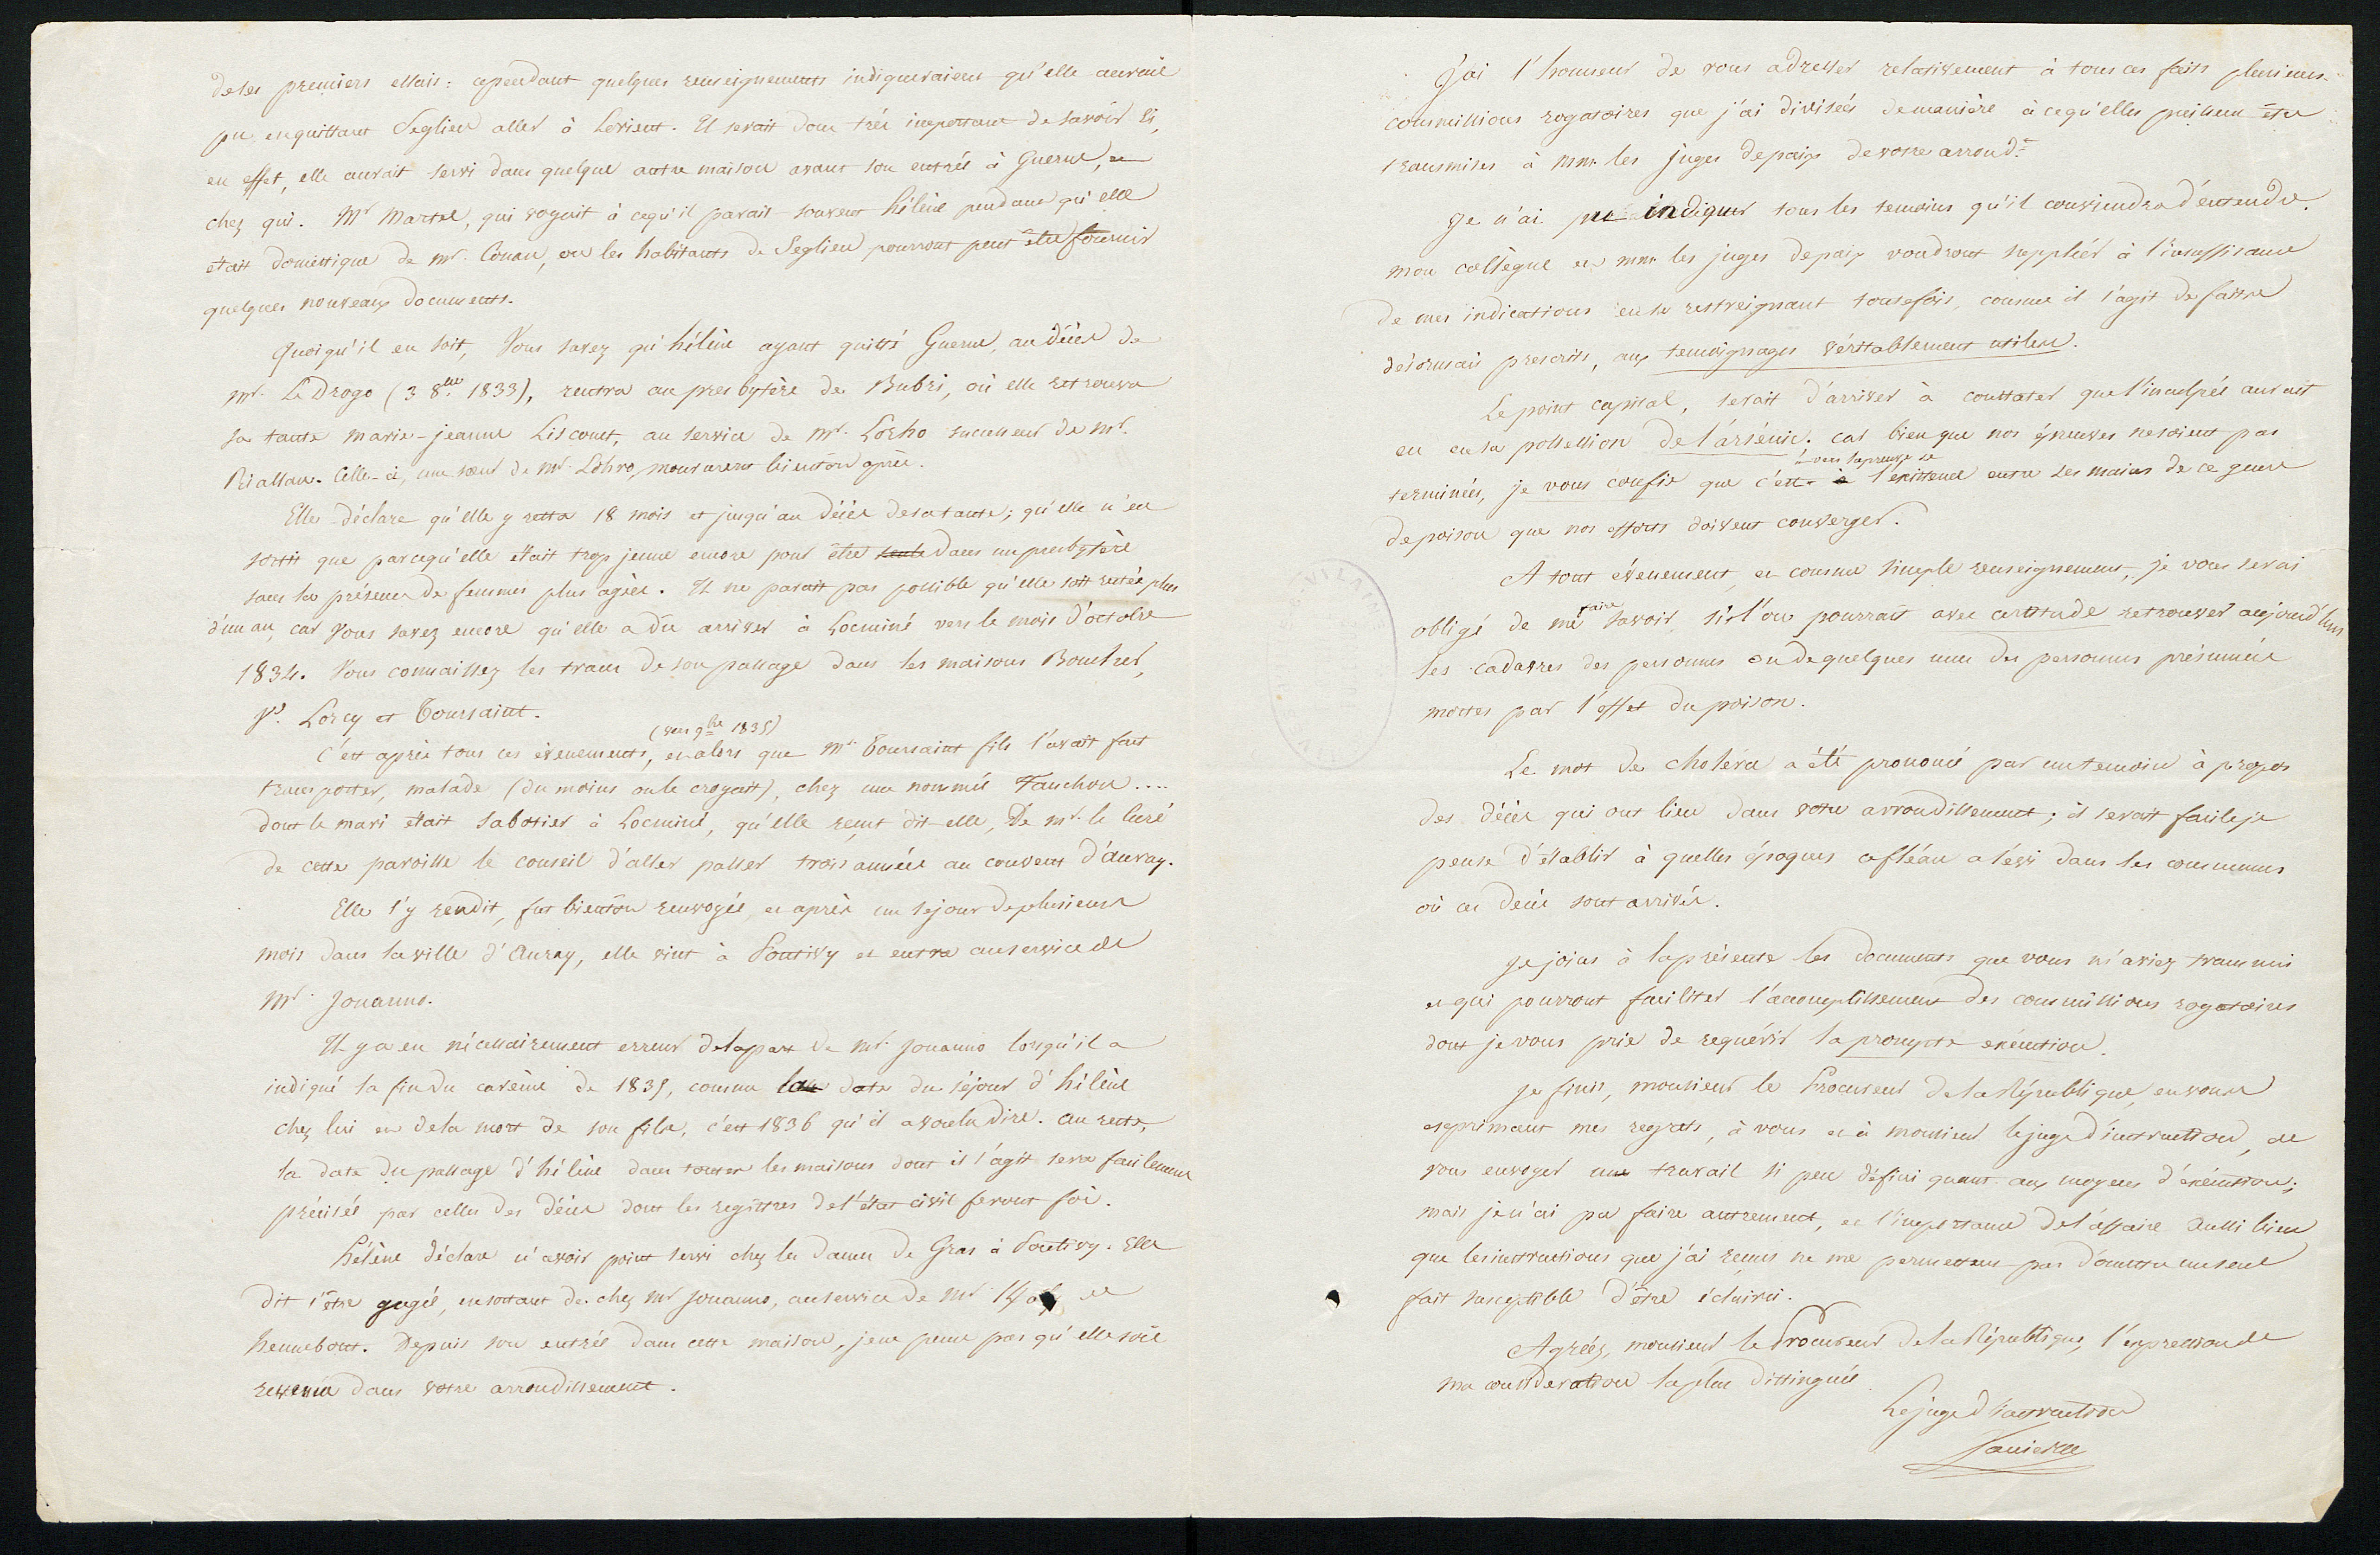 de ses premiers essais : cependant quelques renseignements indiqueraient qu'elle aurait
pu en quittant Seglien aller à Lorient. Il serait donc très important de savoir si,
en effet, elle aurait servi dans quelque autre maison avant son entrée à Guern, et
chez qui. Mr Martel, qui voyait à ce qu'il parait souvent hélène pendant qu'elle
était domestique de mr. Conan, ou les habitants de Seglien pourront peut être fournir
quelques nouveaux documents.
Quoiqu'il en soit, Vous savez qu'hélène ayant quitté Guern, au décès de
mr. Le Drogo (3 8bre 1833), rentra au presbytère de Bubri, où elle retrouva
sa tante marie-jeanne Liscouet, au service de mr. Lorho successeur de mr.
Riallan. Celle-ci, une sœur de mr. Lohro, moururent bientôt après.
Elle déclare qu'elle y resta 18 mois et jusqu'au décès de sa tante; qu'elle n'en
sortit que parcequ'elle était trop jeune encore pour être seule dans un presbytère
sans la présence de femmes plus agées. Il ne parait pas possible qu'elle soit restée plus
d'un an, car vous savez encore qu'elle a dû arriver à Locminé vers le mois d'octobre
1834. Vous connaissez les traces de son passage dans les maisons Bouchet,
Ve. Lorcy et Toursaint.
(vers 9bre 1835)
C'est après tous ces évenements, et alors que Mr. Toursaint fils l'avait fait
transporter, malade (du moins on le croyait), chez une nommée Fanchon....
dont le mari était sabotier à Locminé, qu'elle reçut dit-elle, De mr. le curé
de cette paroisse le conseil d'aller passer trois années au couvent d'auray.
Elle s'y rendit, fut bientôt renvoyée, et après un séjour de plusieurs
mois dans la ville d'Auray, elle vint à Pontivy et entra au service de
Mr. Jouanno.
Il y a eu nécessairement erreur de la part de mr. jouanno lorsqu'il a
indiqué la fin du carême de 1835, comme la date du séjour d'hélène
chez lui et de la mort de son fils, c'est 1836 qu'il a voulu dire. au reste,
la date du passage d'hélène dans toutes les maisons dont il s'agit sera facilement
précisée par celles des décès dont les registres de l'état civil feront foi.
hélène déclare n'avoir point servi chez les dames de Gras à Pontivy. Elle
dit s'être gagée, en sortant de chez mr jouanno, au service de mr
hennebont. Depuis son entrée dans cette maison, je ne pense pas qu'elle soit
revenue dans votre arrondissement.
J'ai l'honneur de vous adresser relativement à tous ces faits plusieurs
commissions rogatoires que j'ai divisées de manière à ce qu'elles puissent être
transmises à mm. les juges de paix de votre arrondt.
Je n'ai pu indiquer tous les temoins qu'il conviendra d'entendre.
mon collègue et mm. les juges de paix voudront suppléer à l'insuffisance
de mes indications en se restreignant toutefois, comme il s'agit de faits
désormais prescrits, aux temoignages véritablement utiles.
Le point capital, serait d'arriver à constater que l'inculpée aurait
eu en sa possession de l'arsénic. car bien que nos épreuves ne soient pas
vers la preuve de
terminées, je vous confie que c'est à l'existence entre ses mains de ce genre
de poison que nos efforts doivent converger.
A tout évenement et comme simple renseignement, je vous serai
faire
obligé de me savoir si l'on pourrait avec certitude retrouver aujourd'hui
les cadavres des personnes ou de quelques unes des personnes présumées
mortes par l'effet du poison.
Le mot de choléra a été prononcé par un temoin à propos
des décès qui ont lieu dans votre arrondissement; il serait facile je
pense d'établir à quelles époques ce fléau a sévi dans les communes
où ces décès sont arrivés.
Je joins à la présente les documents que vous m'aviez transmis
et qui pourront faciliter l'accomplissement des commissions rogatoires
dont je vous prie de requérir la prompte exécution.
Je finis, monsieur le Procureur de la République, en vous
exprimant mes regrets, à vous et à monsieur le juge d'instruction, de
vous envoyer un travail si peu défini quant aux moyens d'exécution;
mais je n'ai pu faire autrement, et l'importance de l'affaire aussi bien
que les instructions que j'ai reçues ne me permettent pas d'omettre un seul
fait susceptible d'être éclairci.
Agréez, monsieur le Procureur de la République, l'expression de
ma considération la plus distinguée
Le juge d'instruction
VILAINE